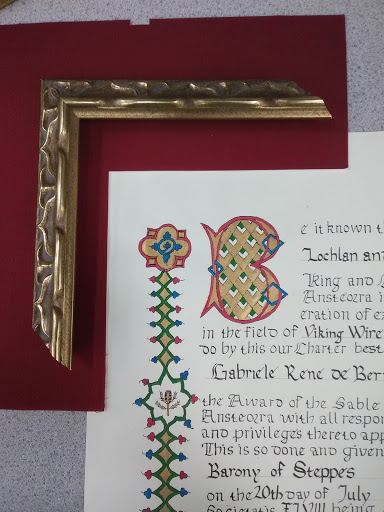 Be it known th
Lochlan and
King and
Ansteorra i
eration of ex
in the field of Viking Wire
do by this our Charter best
Gabriele René de Ber
the Award of the Sable
Ansteorra with all respon
and privileges thereto app
This is so done and given
Barony of Steppes
on the 20th day of July
Societatis XLVIII being